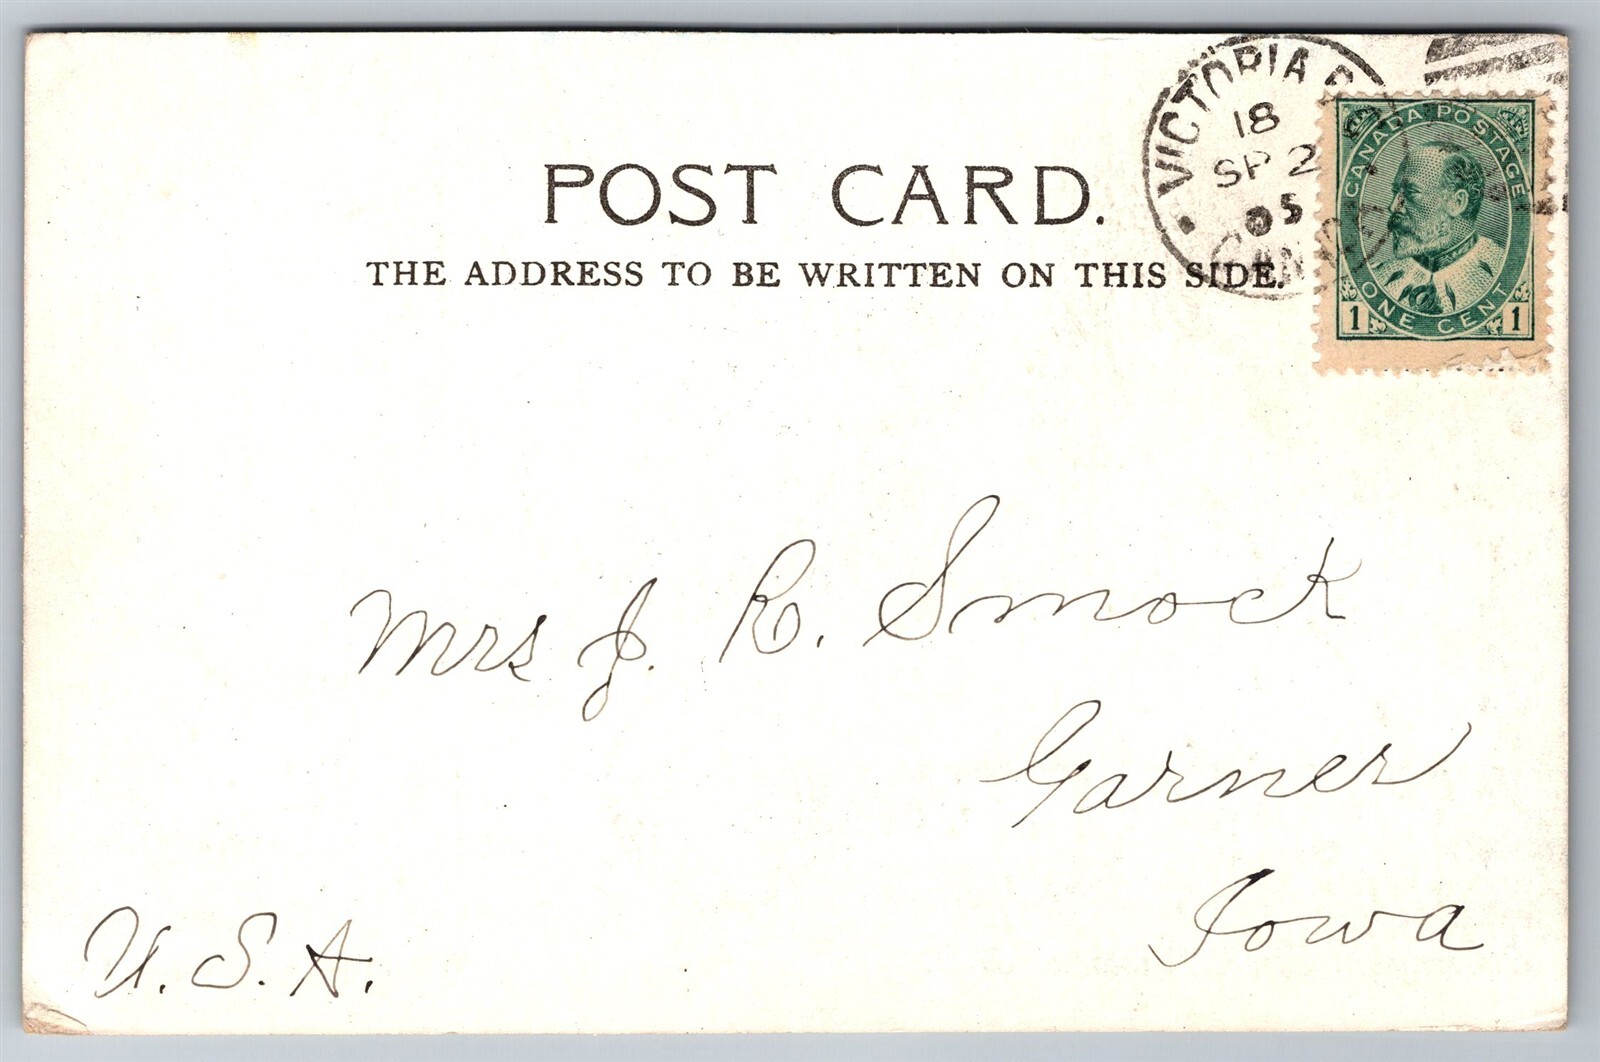 POST CARD.
THE ADDRESS TO BE WRITTEN ON THIS SIDE.
VICTORIA B
18
SP 2
05
CANADA
CANADA POSTAGE
ONE CENT
1 1
Mrs J. R. Smock
Garner
Iowa
U. S. A.